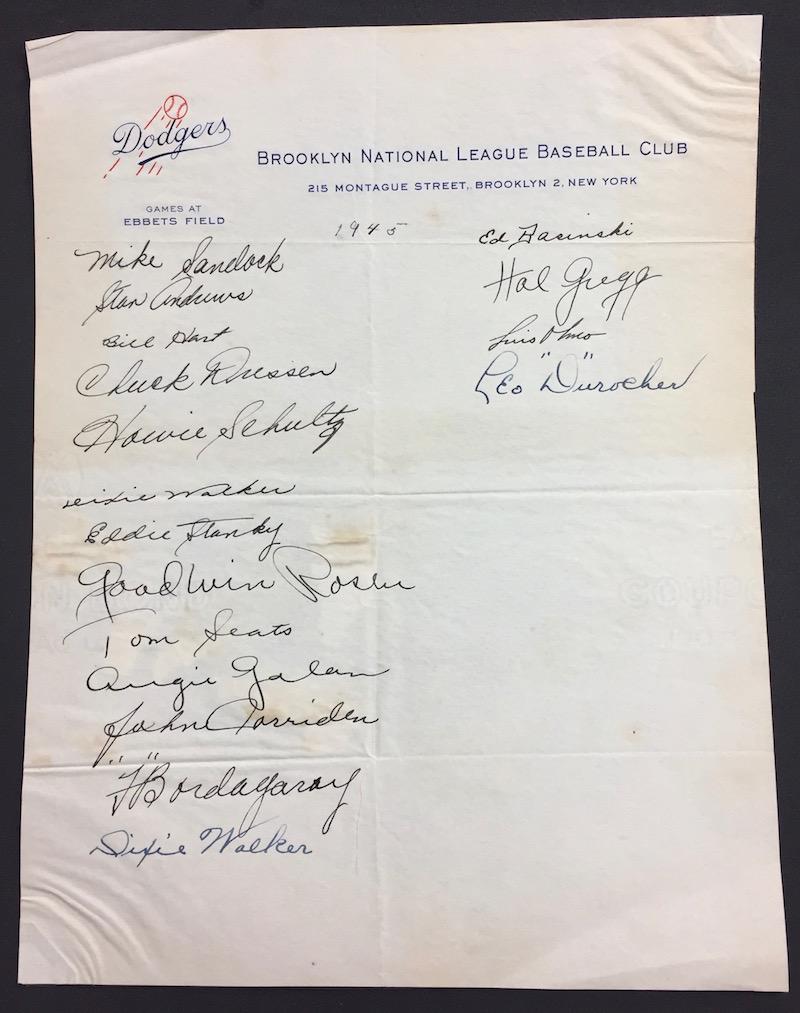 Dodgers
BROOKLYN NATIONAL LEAGUE BASEBALL CLUB
215 MONTAGUE STREET, BROOKLYN 2, NEW YORK
GAMES AT
EBBETS FIELD
1945
Mike Sandock
Stan Andrews
Bill Hart
Chuck Dressen
Howie Schultz
Dixie Walker
Eddie Stanky
Goodwin Rosen
Tom Seats
Augie Galan
John Corriden
"F" Bordagaray
Dixie Walker
Ed Basinski
Hal Gregg
Luis Olmo
Leo "Durocher"